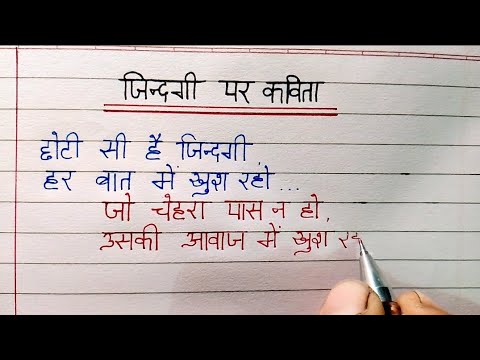 जिन्दगी पर कविता
छोटी सी है जिन्दगी,
हर बात में खुश रहो...
जो चेहरा पास न हो,
उसकी आवाज में खुश रह